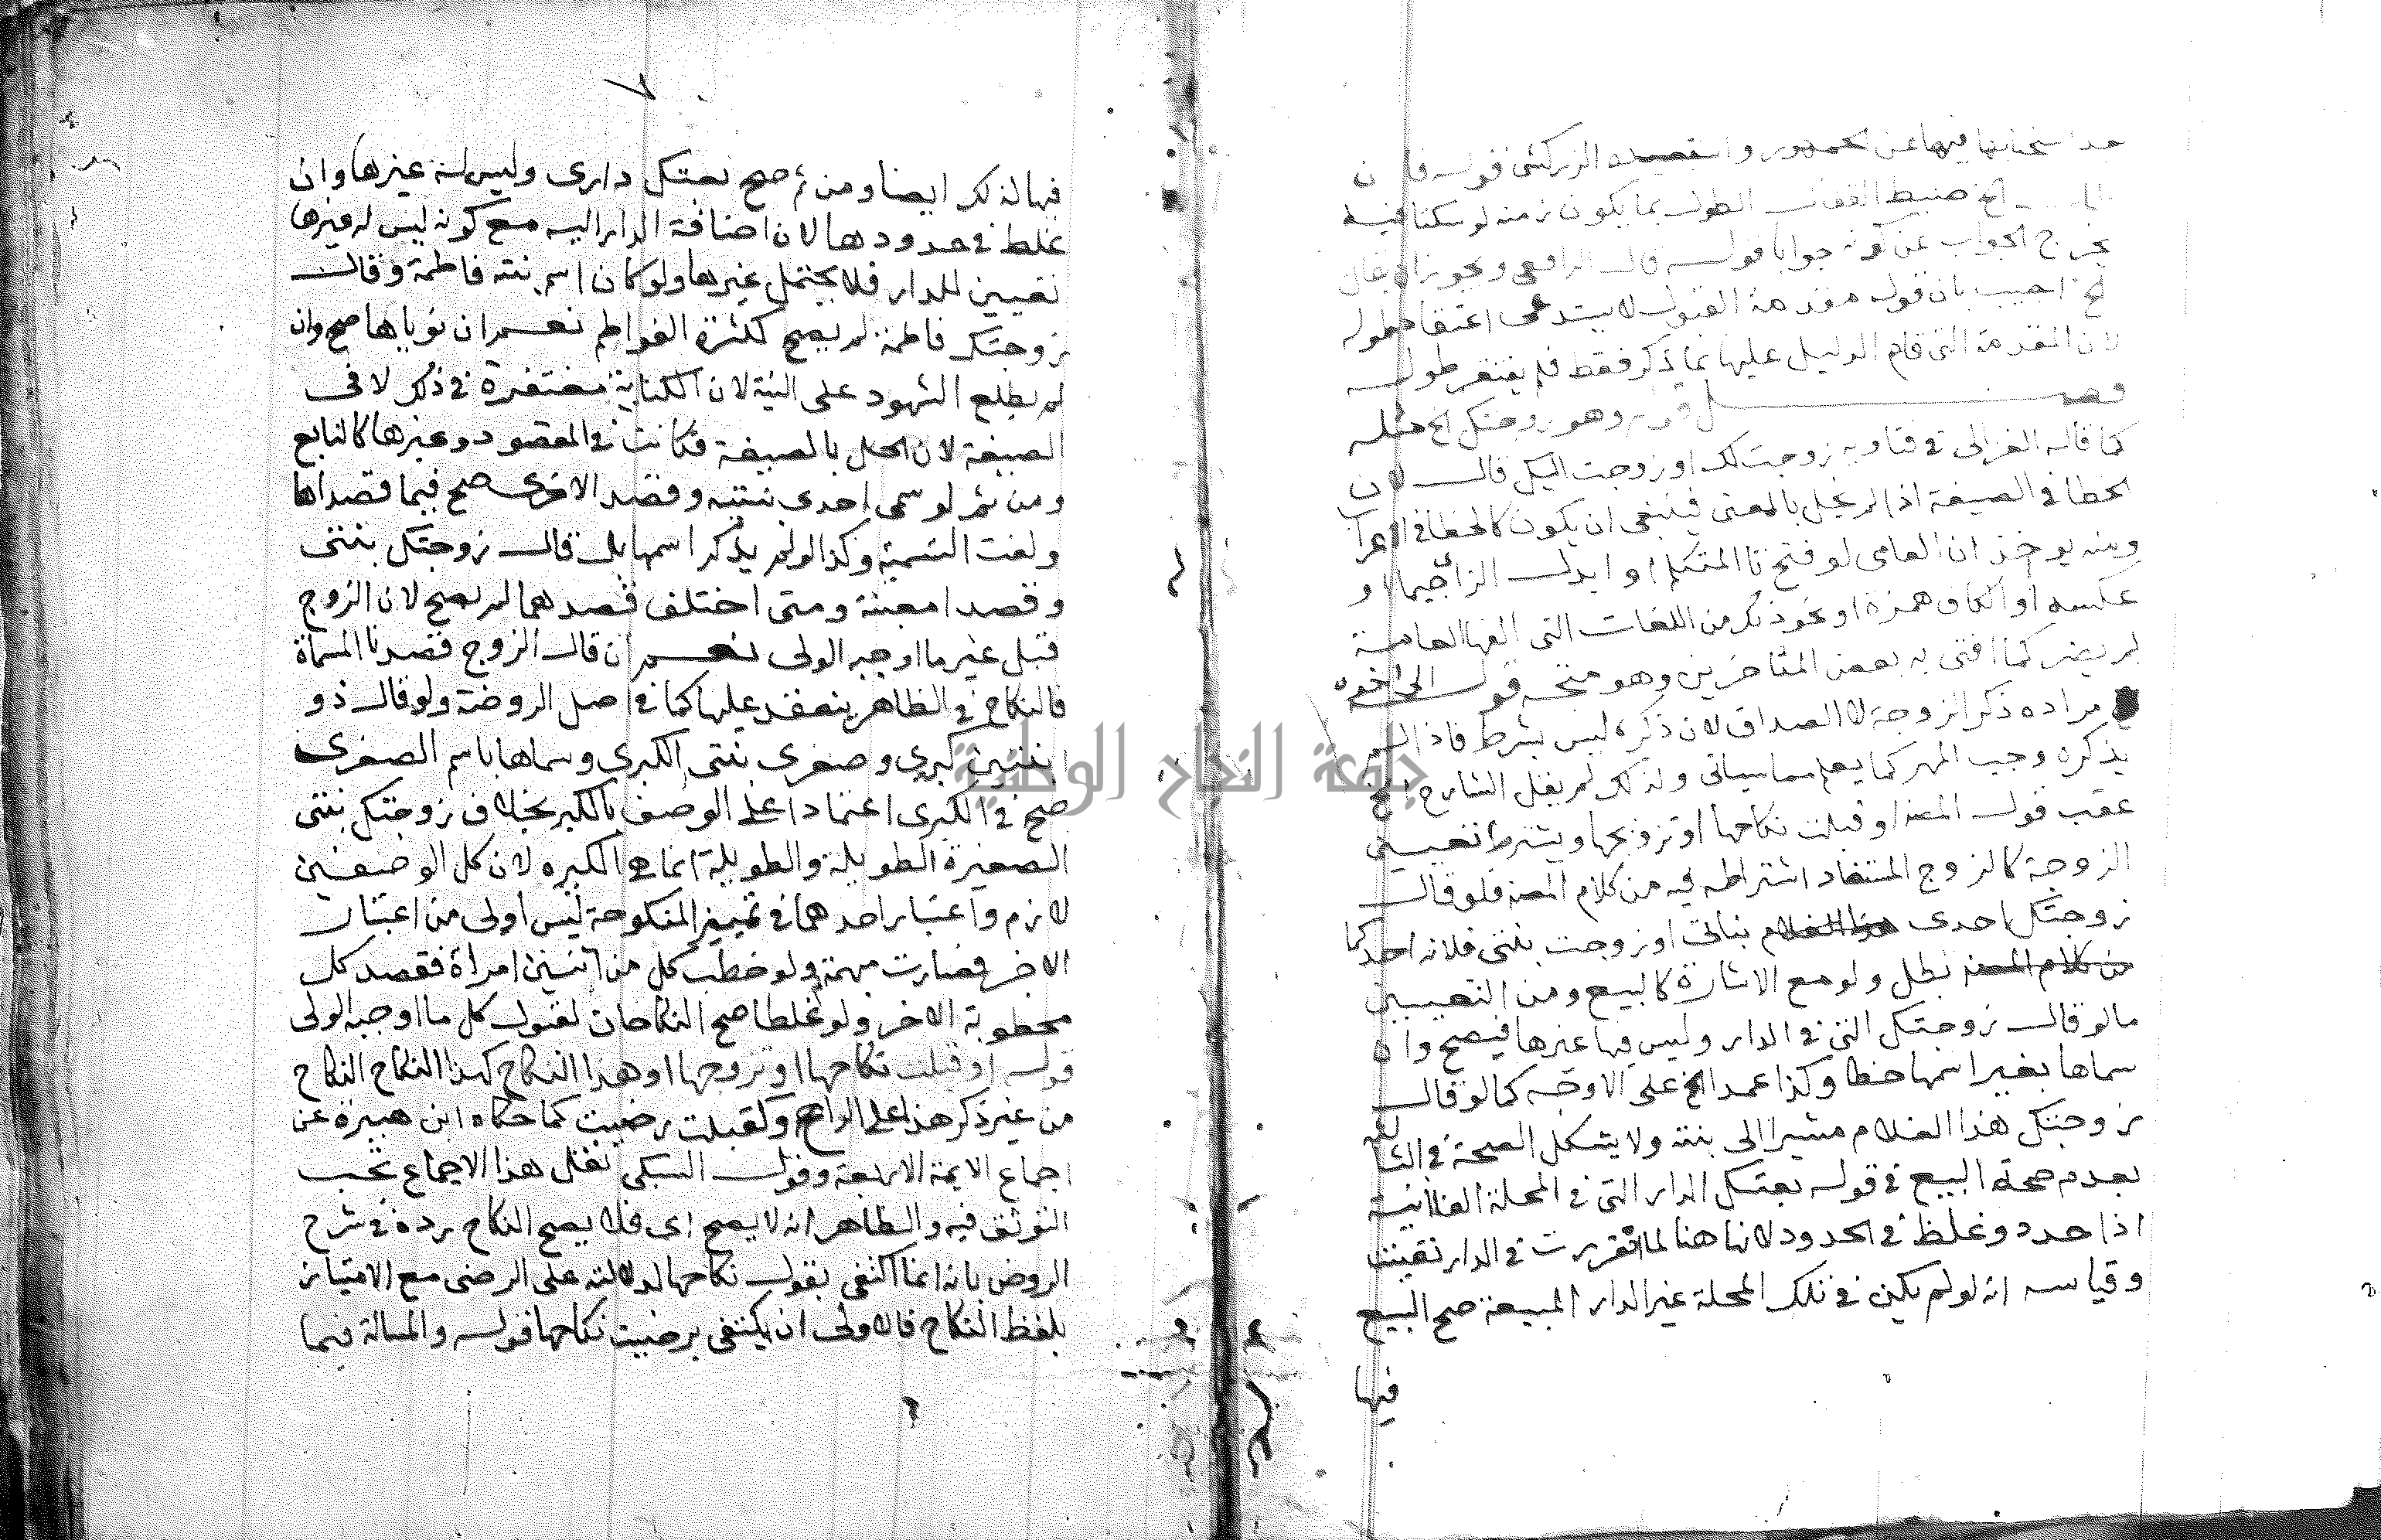 عدا استحبابها فيها عن الجمهور واستبعده الزركشي قوله فان
الخ ضبط القفال الطول بما يكون زمنه لو سكتا فيه
يخرج الجواب عن كونه جوابا قوله قال الرافعي ويجوز ان يقال
الخ اجيب بان قوله مقدمة القبول لا يستدعي اغتفار طوله
لان المقدمة التي قام الدليل عليها بما ذكر فقط فلم يغتفر طوله
فصل قوله وهو زوجتك الخ مثله
كما قاله الغزالي في فتاويه زوجت لك او زوجت اليك قال لان
الخطا في الصيغة اذا لم يخل بالمعنى فينبغي ان يكون كالخطا في الاعراب
ومنه يوخذ ان العامي لو فتح تا المتكلم او ابدل الزاي جيما او
عكسه او الكاف همزة او نحو ذلك من اللغات التي الفها العامة
لم يضر كما افتى به بعض المتاخرين وهو متجه قوله الى اخره
مراده ذكر الزوجة لا الصداق لان ذكره ليس بشرط فاذا لم
يذكره وجب المهر كما يعلم مما سياتي ولذلك لم يقل الشارح الخ
عقب قول المصنف او قبلت نكاحها او تزويجها ويشترط تعيين
الزوجة كالزوج المستفاد اشتراطه فيه من كلام المصنف فلو قال
زوجتك احدى هذا الغلام بناتي او زوجت بنتي فلانه احدكما
من كلام المصنف بطل ولو مع الاشارة كالبيع ومن التعيين
مالو قال زوجتك التي في الدار وليس فيها غيرها فيصح وان
سماها بغير اسمها خطا وكذا عمدا الخ على الاوجه كما لو قال
زوجتك هذا الغلام مشيرا الى بنته ولا يشكل الصحة في الثالثة
بعدم صحة البيع في قوله بعتك الدار التي في المحلة الفلانية
اذا حدد وغلط في الحدود لانها هنا لما تقررت في الدار تعينت
وقياسه انه لو لم يكن في تلك المحلة غير الدار المبيعة صح البيع
فيها
٧
فيها لذلك ايضا ومن ثم صح بعتك داري وليس له غيرها وان
غلط في حدودها لان اضافة الدار اليه مع كونه ليس له غيرها
تعيين للدار فلا يحتمل غيرها ولو كان اسم بنته فاطمة وقال
زوجتك فاطمة لم يصح لكثرة الفواطم نعم ان نوياها صح وان
لم يطلع الشهود على النية لان الكناية مغتفرة في ذلك لا في
الصيغة لان الحل بالصيغة فكانت في المقصود وغيرها كالتابع
ومن ثم لو سمى احدى بنتيه وقصد الاخرى صح فيما قصداها
ولغت التسمية وكذا لو لم يذكر اسمها بل قال زوجتك بنتي
وقصدا معينة ومتى اختلف قصدهما لم يصح لان الزوج
قبل غير ما اوجبه الولي نعم ان قال الزوج قصدنا المسماة
فالنكاح في الظاهر ينعقد عليها كما في اصل الروضة ولو قال ذو
ابنتين كبرى وصغرى بنتي الكبرى وسماها باسم الصغرى
صح في الكبرى اعتمادا على الوصف بالكبر بخلاف زوجتك بنتي
الصغيرة الطويلة والطويلة انما هي الكبيره لان كل الوصفين
لازم واعتبار احدهما في تمييز المنكوحة ليس اولى من اعتبار
الاخر فصارت مبهمة ولو خطب كل من اثنين امراة فقصد كل
مخطوبة الاخر ولو غلطا صح النكاحان لقبول كل ما اوجبه الولي
قوله او قبلت نكاحها او تزوجها او هذا النكاح كهذا النكاح النكاح
من غير ذكر هذا على الراجح وكقبلت رضيت كما حكاه ابن هبيرة عن
اجماع الايمة الاربعة وقول السبكي نقل هذا الاجماع يجب
التوثق فيه والظاهر انه لا يصح اي فلا يصح النكاح رده في شرح
الروض بانه انما اكتفي بقول نكاحها لدلالته على الرضى مع الامتياز
بلفظ النكاح فالاولى ان يكتفي برضيت نكاحها قوله والمسالة فيما
جامعة النجاح الوطنية